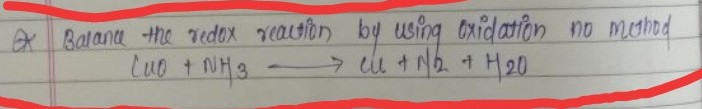 Ex Balance the redox reaction by using oxidation no method
CuO + NH3 ⟶ Cu + N2 + H2O